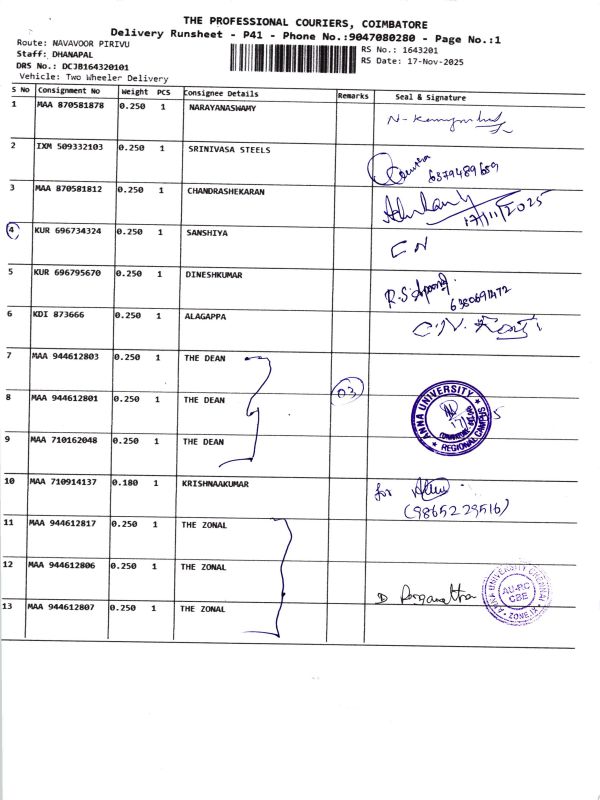 THE PROFESSIONAL COURIERS, COIMBATORE
Delivery Runsheet - P41 - Phone No.:9047080280 - Page No.:1
Route: NAVAVOOR PIRIVU
RS No.: 1643201
Staff: DHANAPAL
RS Date: 17-Nov-2025
DRS No.: DCJB164320101
Vehicle: Two Wheeler Delivery
S No Consignment No Weight PCS Consignee Details Remarks Seal & Signature
1 MAA 870581878 0.250 1 NARAYANASWAMY
2 IXM 509332103 0.250 1 SRINIVASA STEELS
6379489689
3 MAA 870581812 0.250 1 CHANDRASHEKARAN
17/11/2025
4 KUR 696734324 0.250 1 SANSHIYA
5 KUR 696795670 0.250 1 DINESHKUMAR
6 KDI 873666 0.250 1 ALAGAPPA
7 MAA 944612803 0.250 1 THE DEAN
8 MAA 944612801 0.250 1 THE DEAN 03
ANNA UNIVERSITY
REGIONAL CAMPUS
9 MAA 710162048 0.250 1 THE DEAN
10 MAA 710914137 0.180 1 KRISHNAAKUMAR for
(9865229516)
11 MAA 944612817 0.250 1 THE ZONAL
12 MAA 944612806 0.250 1 THE ZONAL
ANNA UNIVERSITY CHENNAI
AU-RC
CBE
13 MAA 944612807 0.250 1 THE ZONAL